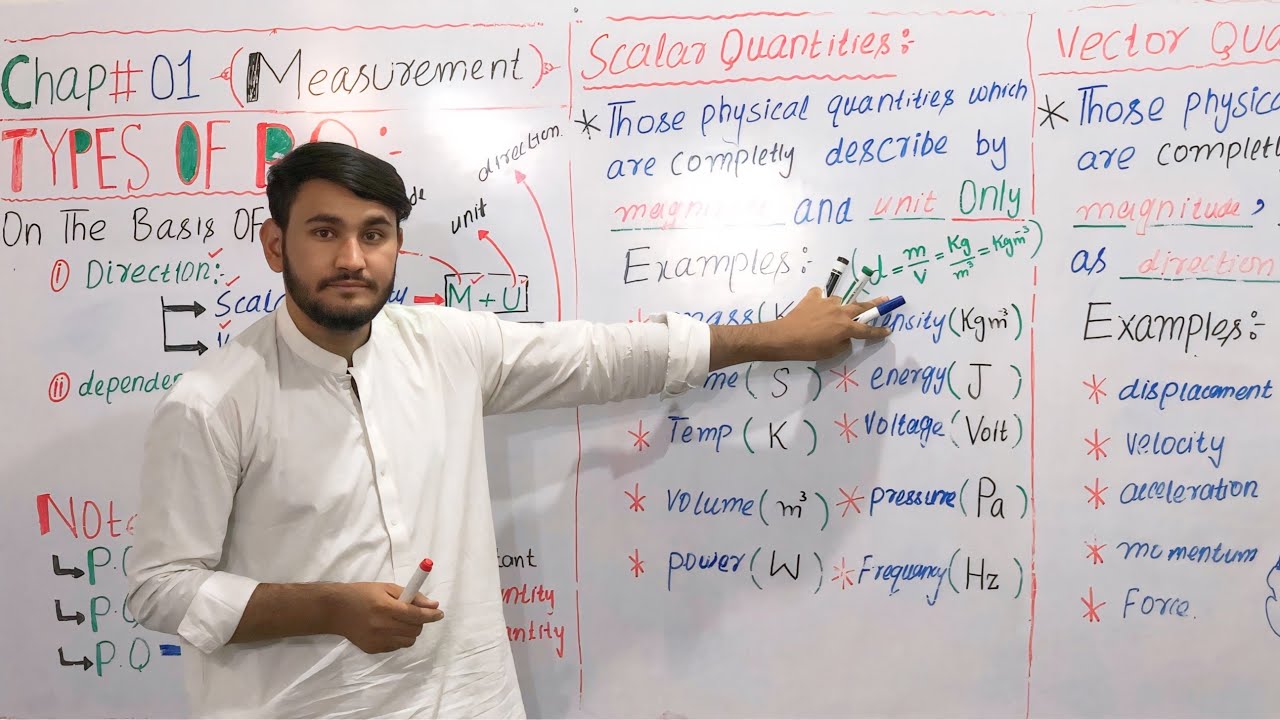 Chap# 01 (Measurement)
TYPES OF P.Q:-
On The Basis OF
(i) Direction:-
Scala
M + U
unit
direction.
(ii) depende
Note
P.Q
P.Q
P.Q
Scalar Quantities:-
* Those physical quantities which
are completly describe by
and unit Only
Examples:- (d = m/v = Kg/m³ = Kgm⁻³)
* mass(K
density(Kgm⁻³)
me(S) * energy(J)
* Temp(K) * Voltage(Volt)
* Volume(m³) * pressure(Pa)
* power(W) * Frequancy(Hz)
Vector QUA
* Those physica
are completl
magnitude,
as direction
Examples:-
* displacement
* velocity
* acceleration
* momentum
* Force.